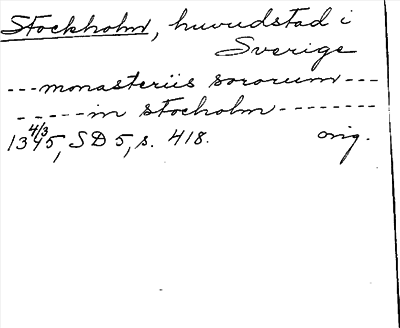 Stockholm, huvudstad i
Sverige
---monasteriis sororum---
-----in stocholm-------
1345 4/3, SD 5, s. 418. orig.